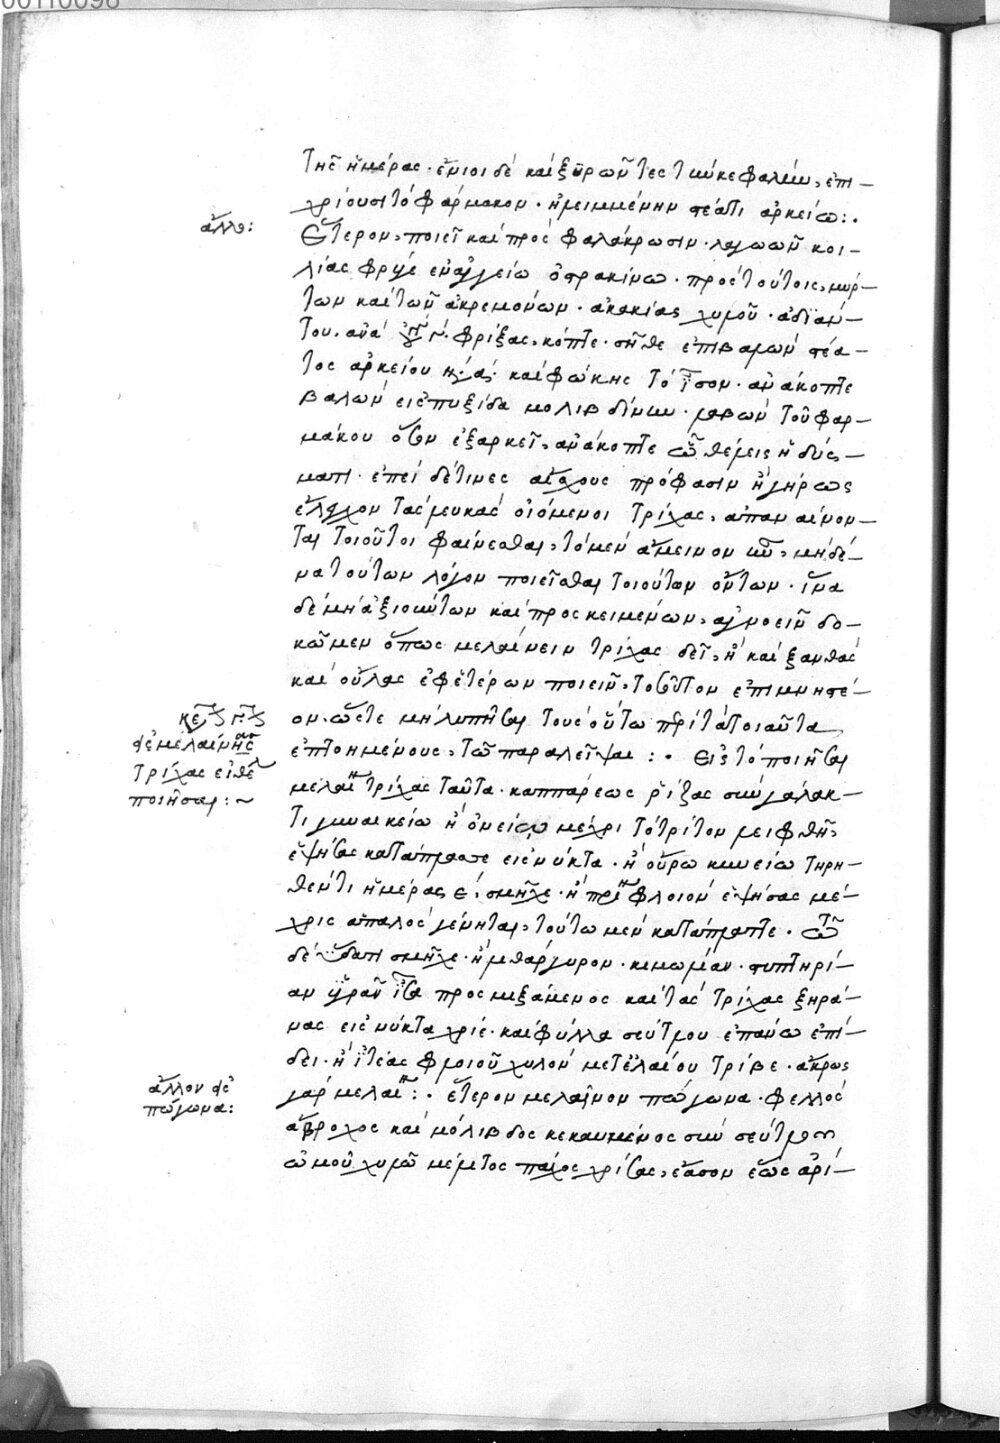 της ἡμέρας· ἔνιοι δὲ καὶ ξυρῶντες τὴν κεφαλὴν, ἐπι-
χρίουσι τὸ φάρμακον· στέατι ἀρκείω:·
ἄλλο:
Ἕτερον, ποιεῖ καὶ πρὸς φαλάκρωσιν· λαγωῶν κοι-
λίας φρῦγε ἐν ἀγγείω ὀστρακίνω· πρὸς τούτοις, μύρ-
των καὶ τῶν ἀκρεμόνων· ἀκακίας χυμοῦ· ἀδϊάν-
του· ἀνὰ φρίξας, κόπτε· σῆθε ἐπιβαλὼν στέα-
τος ἀρκείου καὶ φώκης τὸ ἴσον· ἀνάκοπτε
βαλὼν εἰς πυξίδα μολιβδίνην· λαβὼν τοῦ φαρ-
μάκου ὅσον ἐξαρκεῖ, ἀνάκοπτε
ἐπεὶ δέ τινες αἴσχους πρόφασιν ἢ γήρως
ἔλεγχον τὰς λευκὰς οἰόμενοι τρίχας, ἀπαναίνον-
ται τοιοῦτοι φαίνεσθαι, τὸ μὲν ἄμεινον ἦν, μηδέ-
να τούτων λόγον ποιεῖσθαι τοιούτων ὄντων· ἵνα
δὲ μὴ ἀξιούντων καὶ προσκειμένων, ἀγνοεῖν δο-
κῶμεν ὅπως μελαίνειν τρίχας δεῖ, ἢ καὶ ξανθὰς
καὶ οὔλας ἐφ' ἑτέρων ποιεῖν, τοσοῦτον ἐπιμνηστέ-
ον, ὥστε μὴ λυπῆσαι τοὺς οὕτω περὶ τὰ τοιαῦτα
μελαίνης
τρίχας
ποιῆσαι:~
ἐπτοημένους, τῶ παραλεῖψαι:· Εἰς τὸ ποιῆσαι
τρίχας ταῦτα· καππάρεως ῥίζας σὺν γάλακ-
τι γυναικείω ἢ ὀνείω μέχρι τὸ τρίτον λειφθῆ,
ἑψήσας κατάπλασσε εἰς νύκτα· ἢ οὔρω κυνείω τηρη-
θέντι ἡμέρας ε', σμῆχε· ἢ φλοιὸν ἑψήσας μέ-
χρις ἁπαλὸς γένηται, τούτω μὲν κατάπλαττε·
δὲ ὕδατι σμῆχε· ἢ λιθάργυρον· κιμωλίαν· στυπτηρί-
αν ὑγρὰν ἴσα προσμιξάμενος καὶ τὰς τρίχας ξηρά-
νας εἰς νύκτα χρίε· καὶ φύλλα σεύτλου ἐπάνω ἐπί-
δει· ἢ ἰτέας φλοιοῦ χυλὸν μετ' ἐλαίου τρίβε· ἄκρως
ἄλλον
πώγωνα:
γὰρ ἕτερον μελαῖνον πώγωνα· φελλὸς
ἄβροχος καὶ μόλιβδος κεκαυμένος σὺν σεύτλου
ὠμοῦ χυμῶ μέλιτος πάχος χρίσας, ἔασον ἕως ἀρί-